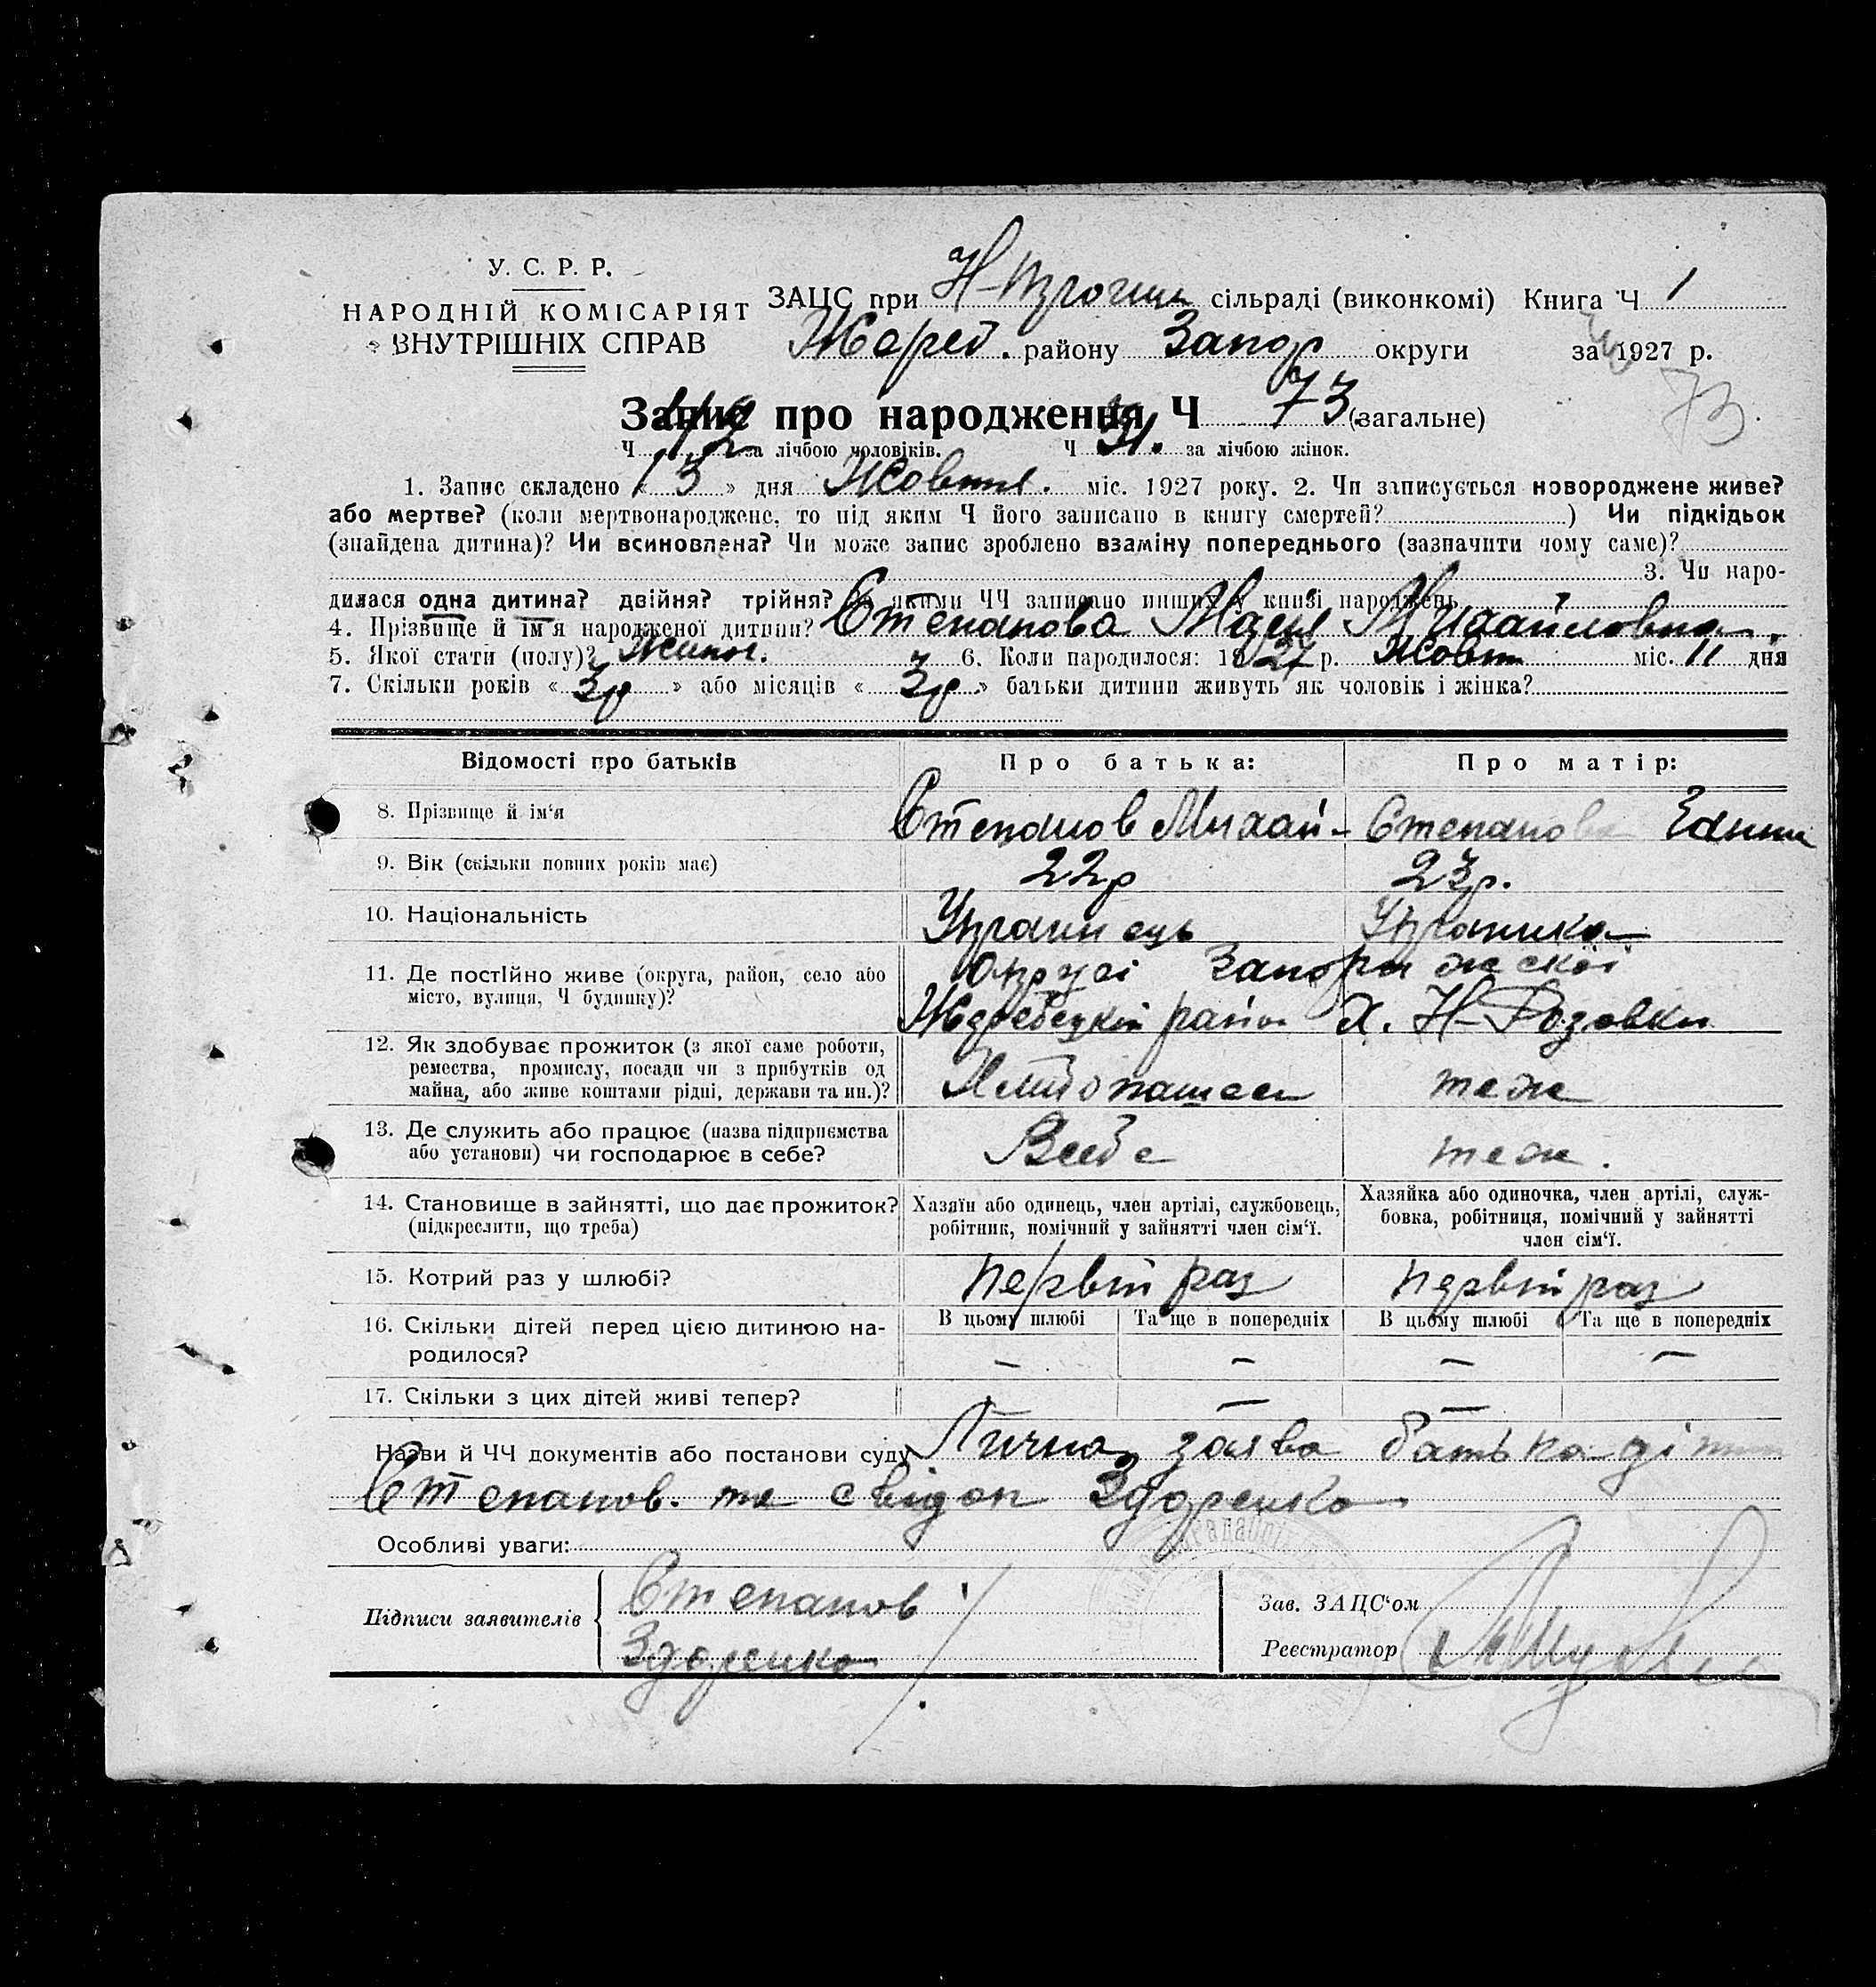 У. С. Р. Р.
НАРОДНІЙ КОМІСАРІЯТ
ВНУТРІШНІХ СПРАВ
ЗАЦС при сільраді (виконкомі) Книга Ч 1
Жереб. району Запор округи за 1927 р.
73
Запис про народження Ч 73 (загальне)
Ч 42 за лічбою чоловіків. Ч 31. за лічбою жінок.
1. Запис складено « 13 » дня Жовтня. міс. 1927 року. 2. Чи записується новороджене живе?
або мертве? (коли мертвонароджене, то під яким Ч його записано в книгу смертей? ) Чи підкідьок
(знайдена дитина)? Чи всиновлена? Чи може запис зроблено взаміну попереднього (зазначити чому саме)?
3. Чи наро-
дилася одна дитина? двійня? трійня? якими ЧЧ записано инших у книзі народжень
4. Прізвище й ім'я народженої дитини? Степанова Михайловна.
5. Якої статі (полу)? Жіноч. 6. Коли народилося: 1927 р. Жовт міс. 11 дня
7. Скільки років « 3р » або місяців « 3р » батьки дитини живуть як чоловік і жінка?
Відомості про батьків Про батька: Про матір:
8. Прізвище й ім'я Степанов Михай- Степанова Ганна
9. Вік (скільки повних років має) 22р 23р.
10. Національність Украинець Украинка
11. Де постійно живе (округа, район, село або Округі Запорижскоі
місто, вулиця, Ч будинку)? Жеребецкій район х. Н-Розовки
12. Як здобуває прожиток (з якої саме роботи,
ремества, промислу, посади чи з прибутків од
майна, або живе коштами рідні, держави та ин.)? теж
13. Де служить або працює (назва підприємства
або установи) чи господарює в себе? Всебе теж.
14. Становище в зайнятті, що дає прожиток? Хазяїн або одинець, член артілі, службовець, Хазяйка або одиночка, член артілі, служ-
(підкреслити, що треба) робітник, помічний у зайнятті член сім'ї. бовка, робітниця, помічний у зайнятті
член сім'ї.
15. Котрий раз у шлюбі? первій раз первій раз
16. Скільки дітей перед цією дитиною на- В цьому шлюбі Та ще в попередніх В цьому шлюбі Та ще в попередніх
родилося? — — — —
17. Скільки з цих дітей живі тепер? — —
Назви й ЧЧ документів або постанови суду Лична заява батька
Степанов. та свідок Здоренко
Особливі уваги:
Підписи заявителів Степанов
Здоренко
Зав. ЗАЦС'ом
Реєстратор